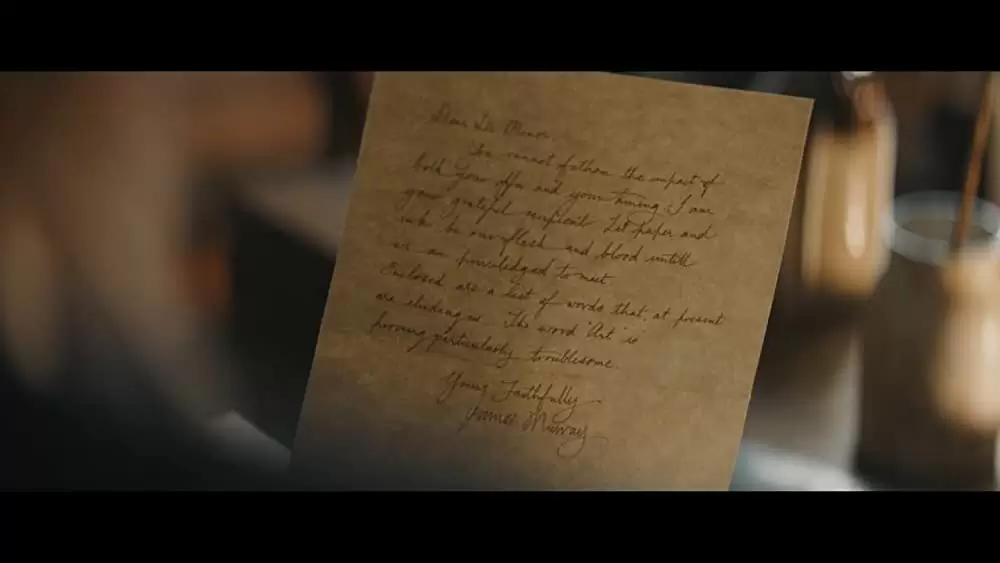 Dear Dr. Minor,
You cannot fathom the impact of
both your offer and your timing. I am
your grateful recipient. Let paper and
ink be our flesh and blood untill
we are priviledged to meet.
Enclosed are a list of words that, at present
are eluding us. The word 'Art' is
proving particularly troublesome.
Yours Faithfully
James Murray